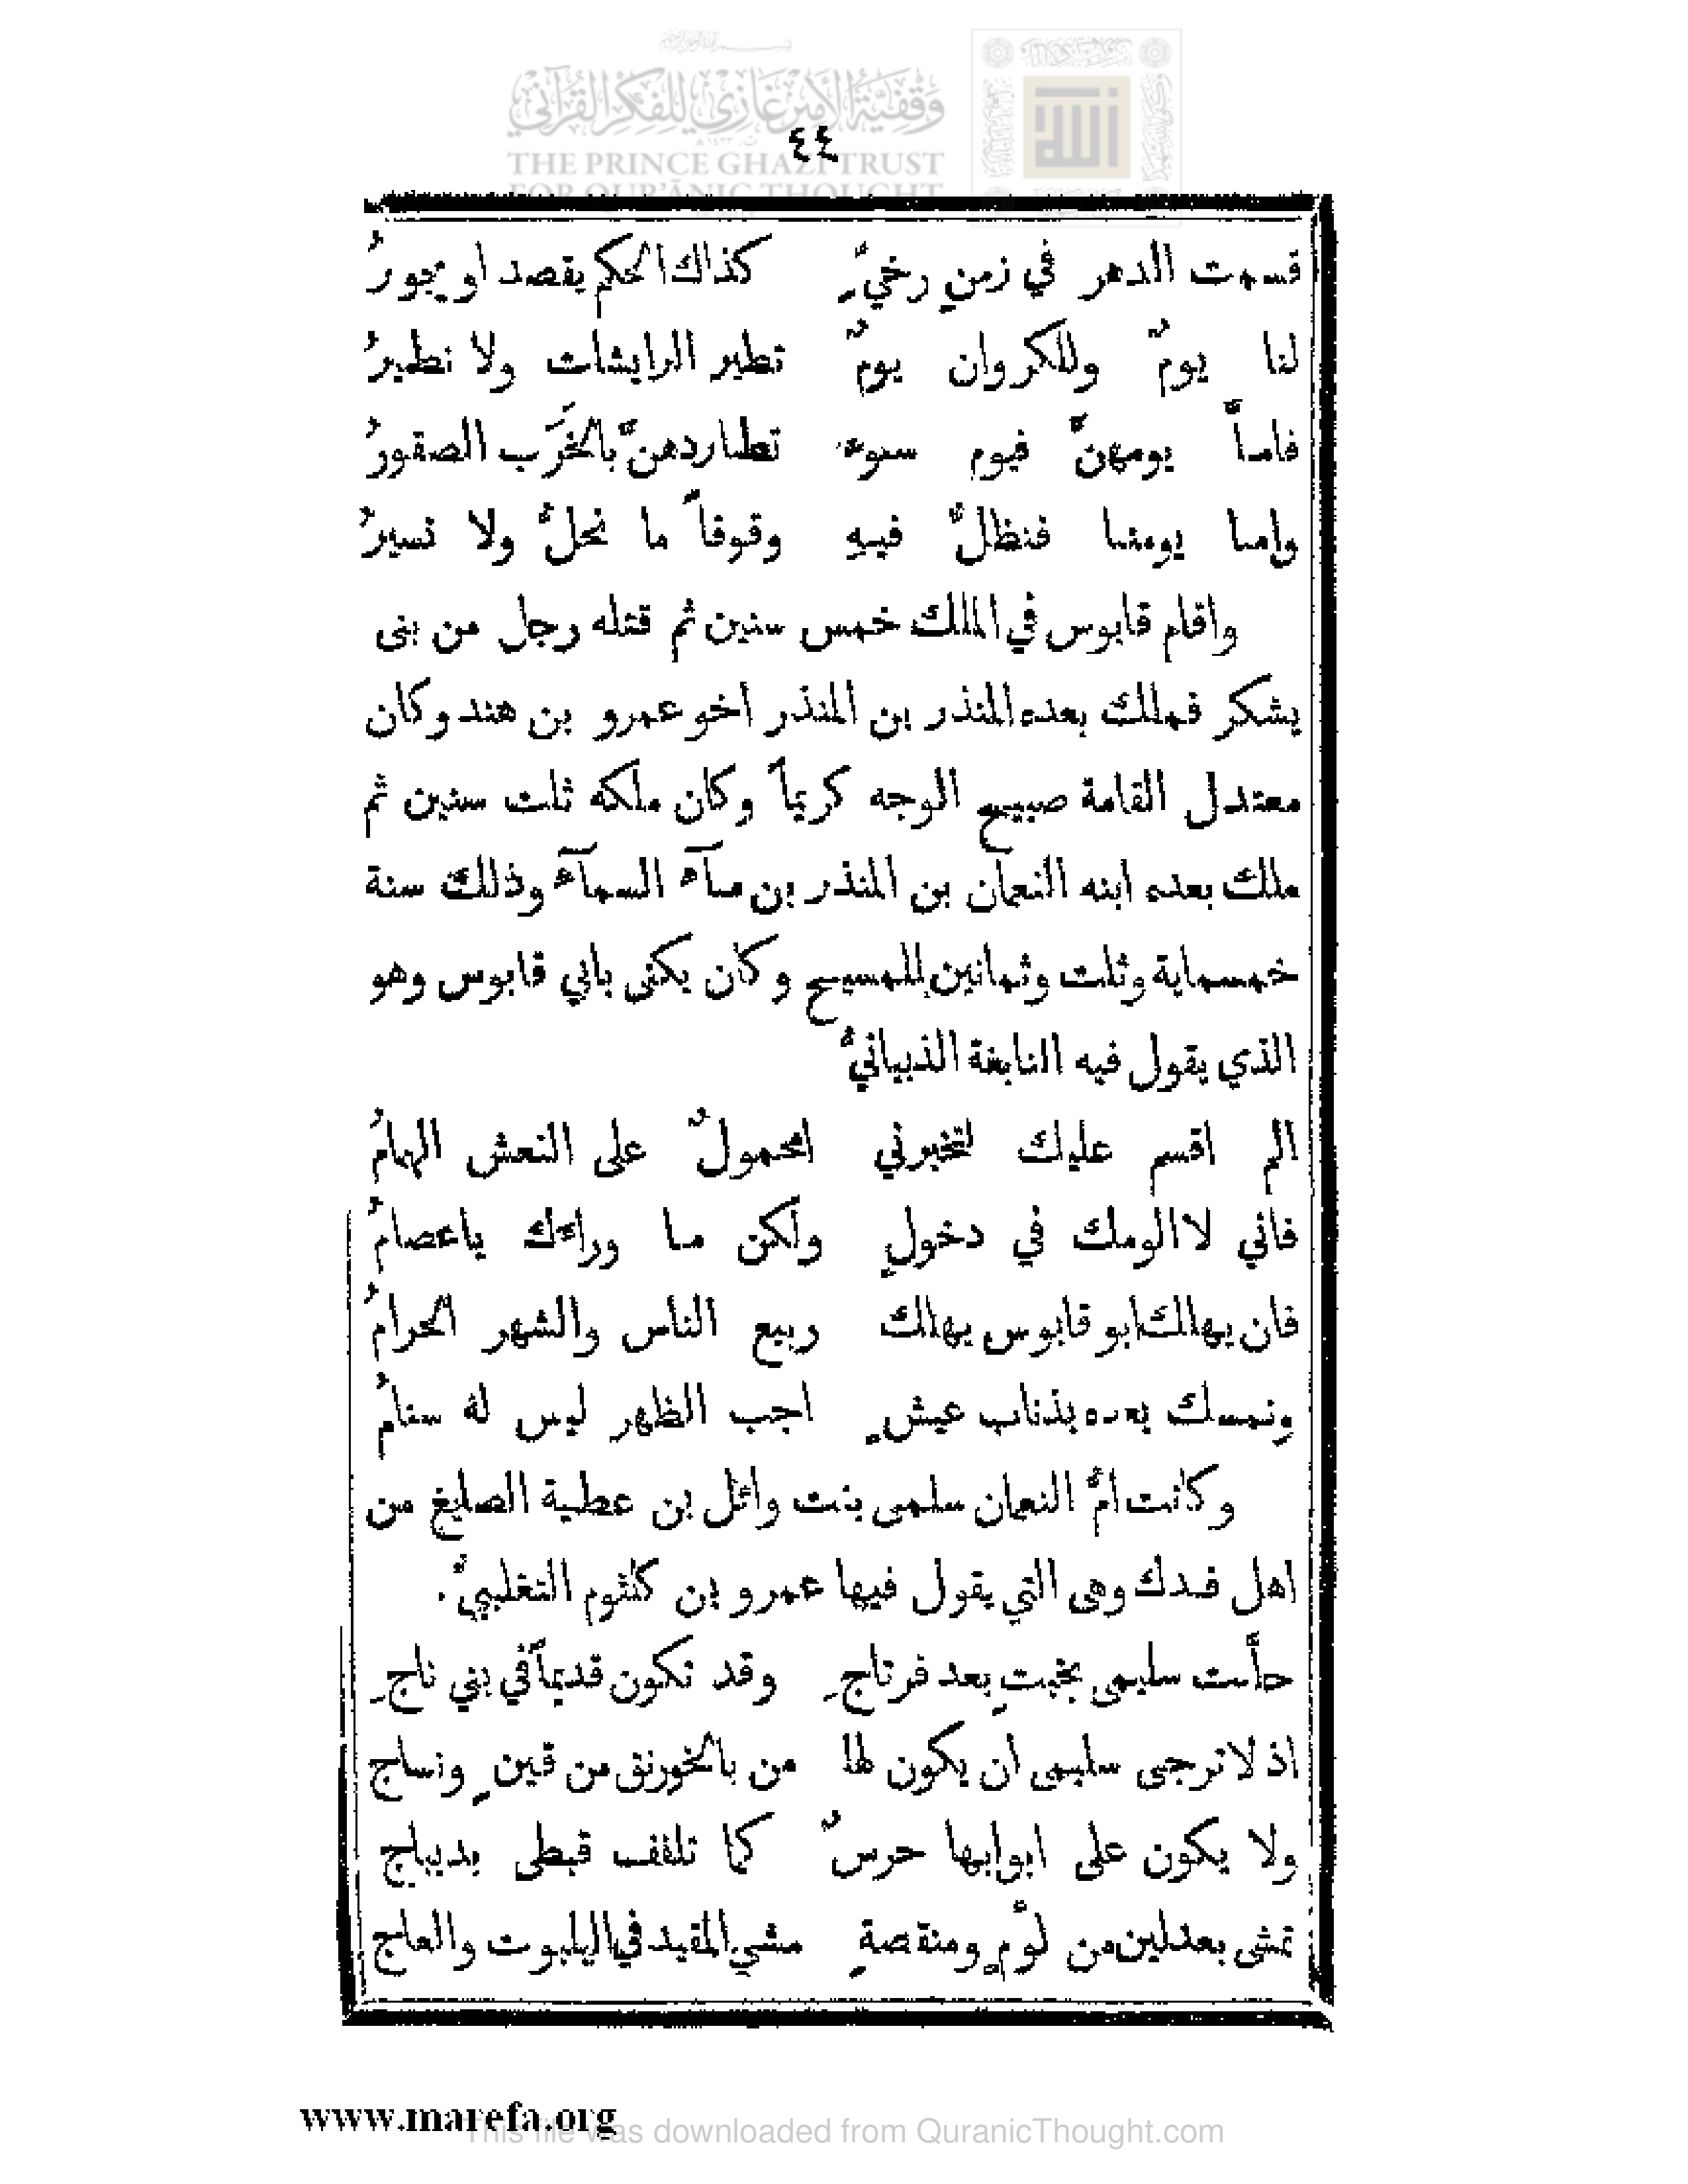 وقفية الأمير غازي للفكر القرآني
THE PRINCE GHAZI TRUST
FOR QUR'ĀNIC THOUGHT
٤٤
قسمت الدهر في زمنٍ رخيٍّ كذاك الحكم يقصد او يجورُ
لنا يومٌ وللكروان يومٌ تطير الرايشات ولا نطيرُ
فاماَّ يومهنَّ فيوم سوء تطاردهنَّ بالخَرَب الصقورُ
واما يومنا فنظلُّ فيهِ وقوفاً ما نحلُّ ولا نسيرُ
واقام قابوس في الملك خمس سنين ثم قتله رجل من بنى
يشكر فملك بعده المنذر بن المنذر اخو عمرو بن هند وكان
معتدل القامة صبيح الوجه كريماً وكان ملكه ثلث سنين ثم
ملك بعده ابنه النعمان بن المنذر بن مآء السمآء وذلك سنة
خمسماية وثلث وثمانين للمسيح وكان يكنى بابي قابوس وهو
الذي يقول فيه النابغة الذبيانيُّ
الم اقسم عليك لتخبرني امحمولٌ على النعش الهمامُ
فاني لا الومك في دخولٍ ولكن ما وراءك ياعصامُ
فان يهلك ابو قابوس يهلك ربيع الناس والشهر الحرامُ
ونمسك بعده بذناب عيشٍ اجب الظهر ليس له سنامُ
وكانت امُّ النعمان سلمى بنت وائل بن عطية الصليغ من
اهل فدك وهى التي يقول فيها عمرو بن كلثوم التغلبيُّ.
حلَّت سليمى بخبتٍ بعد فرتاجِ وقد تكون قديماً في بني ناجِ
اذ لا ترجى سليمى ان يكون لها من بالخورنق من قينٍ ونساج
ولا يكون على ابوابها حرسٌ كما تلفف قبطى بديباج
تمشى بعدلين من لؤمٍ ومنقصةٍ مشي المقيد في اليلبوت والعاج
www.marefa.org
This file was downloaded from QuranicThought.com